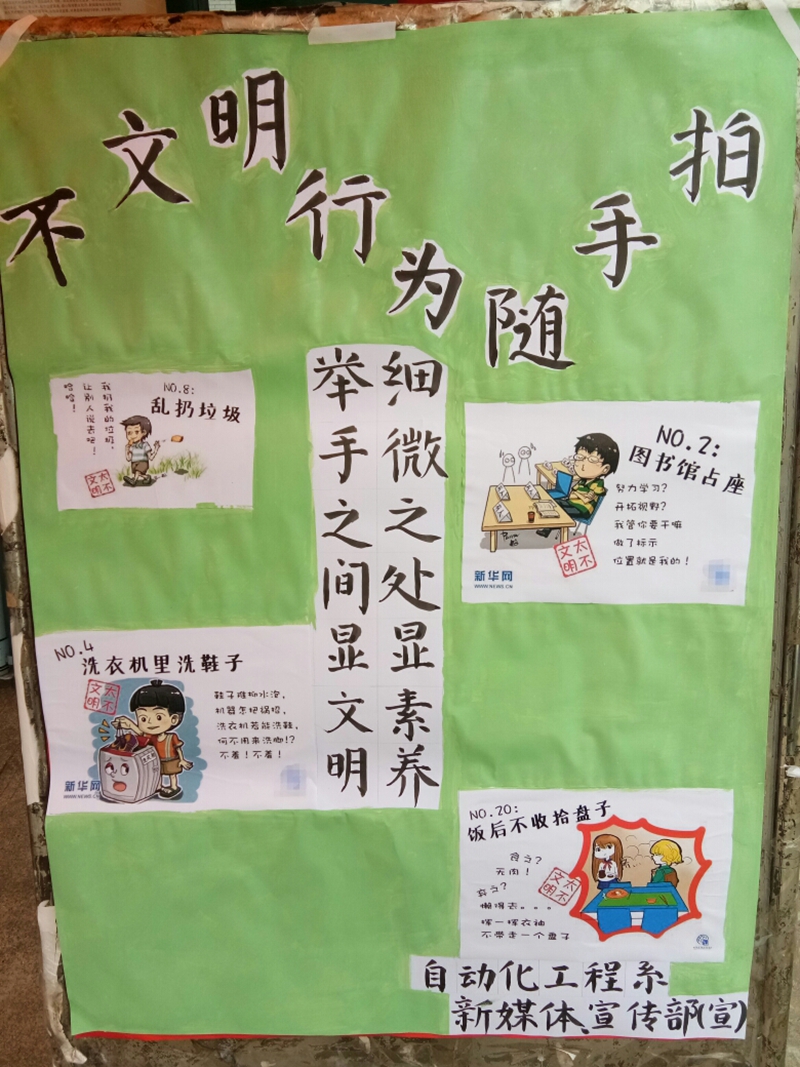 不文明行为随手拍
细微之处显素养
举手之间显文明
NO.8:
乱扔垃圾
我扔我的垃圾,
让别人说去吧!
哈哈!
太不
文明
NO.2:
图书馆占座
努力学习?
开拓视野?
我管你要干嘛
做了标示
位置就是我的!
太不
文明
新华网
WWW.NEWS.CN
NO.4
洗衣机里洗鞋子
鞋子难抑水流,
机器怎把锅招,
洗衣机若能洗鞋,
何不用来洗脚!?
不羞!不羞!
太不
文明
新华网
WWW.NEWS.CN
NO.20:
饭后不收拾盘子
食之?
无肉!
弃之?
懒得去。。。
挥一挥衣袖
不带走一个盘子
太不
文明
自动化工程系
新媒体、宣传部(宣)